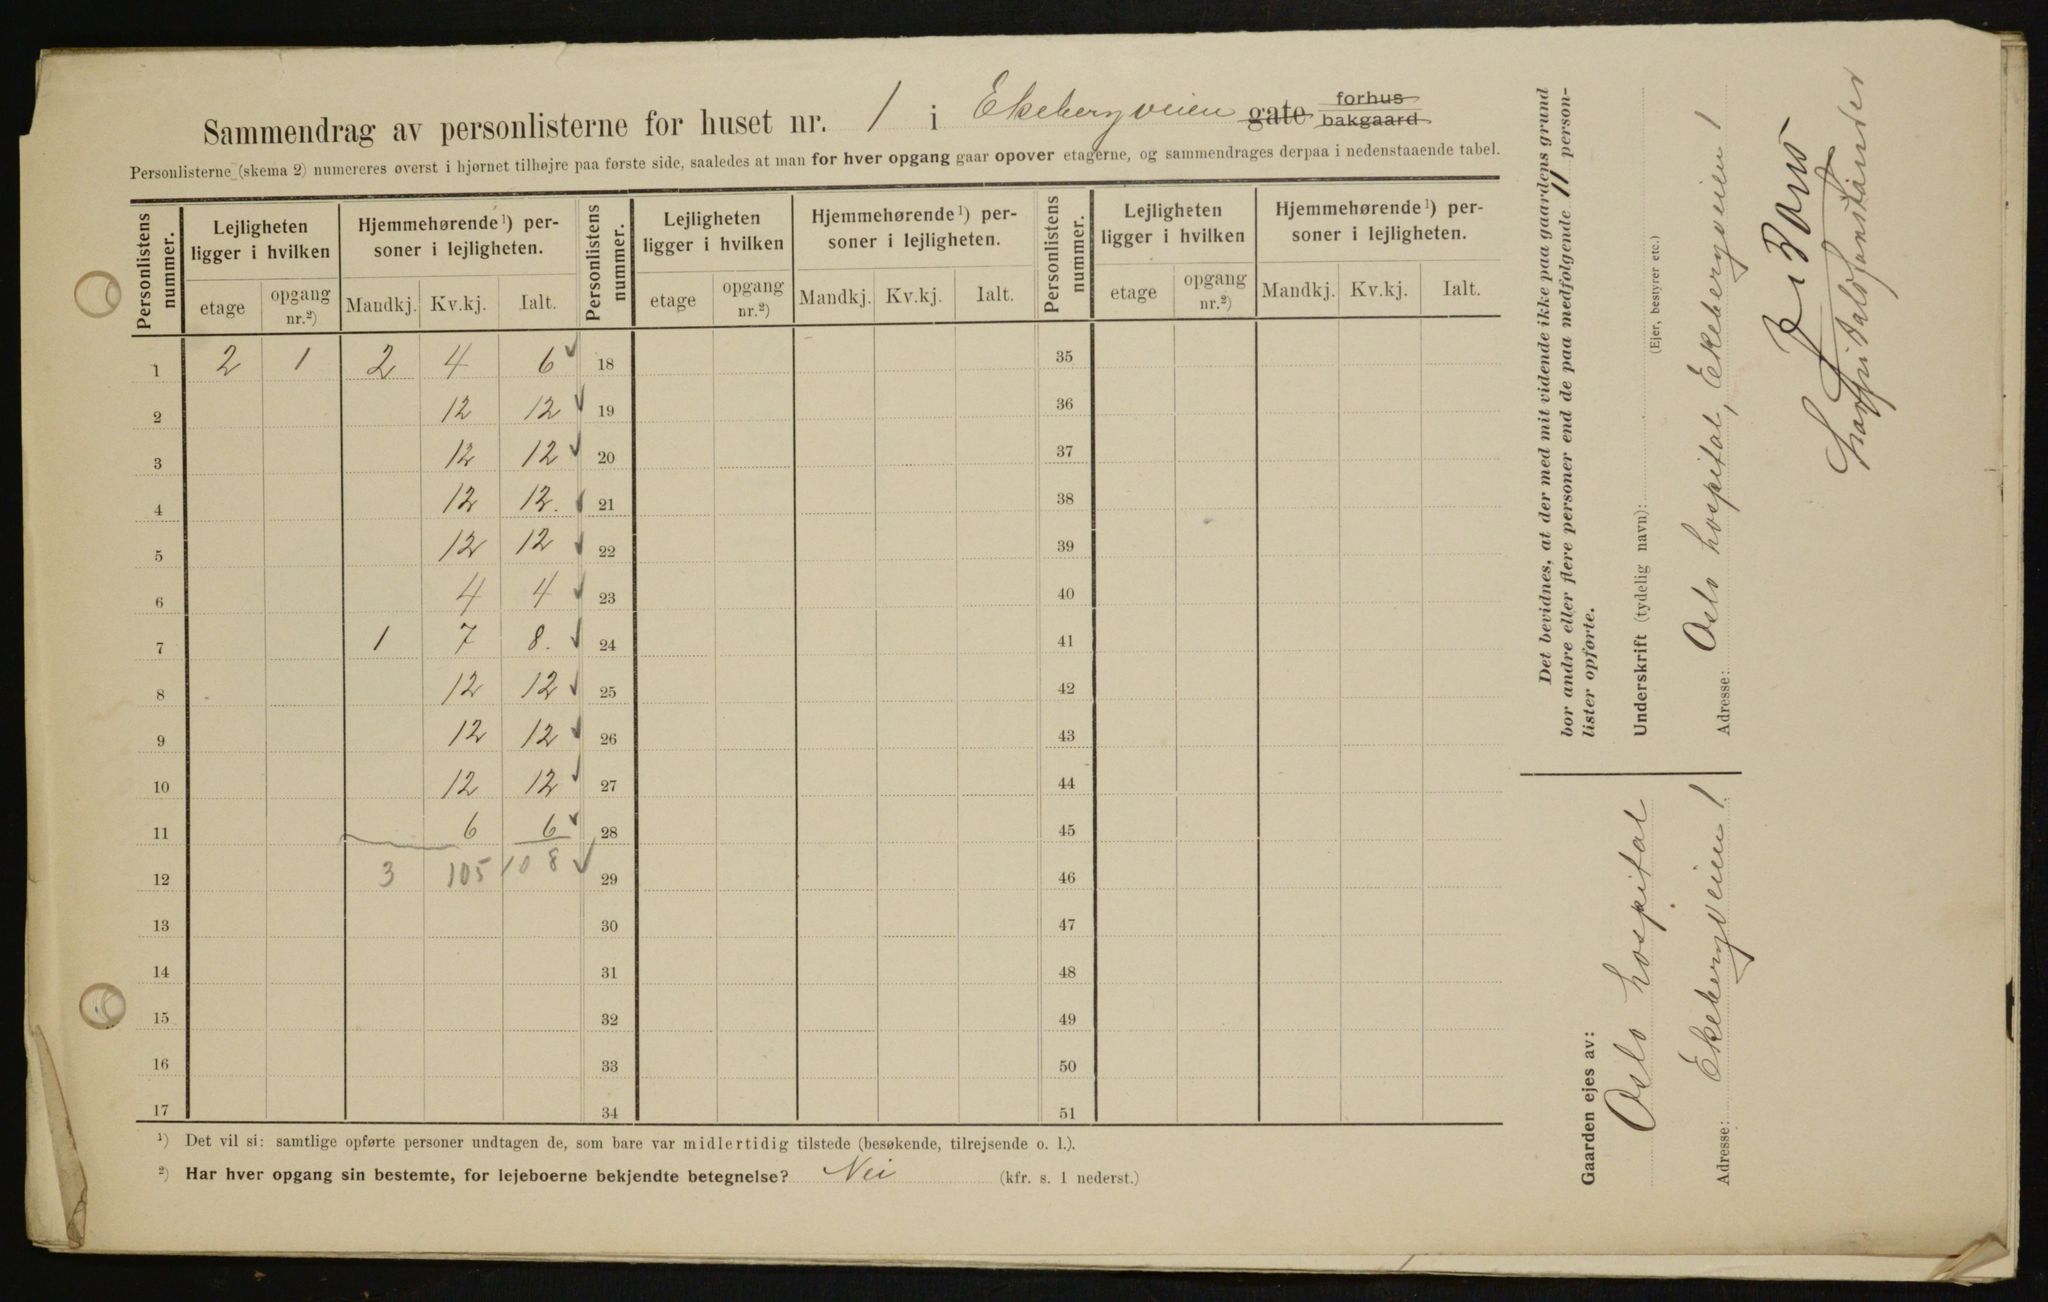 Sammendrag av personlisterne for huset nr. 1 i Ekebergveien gate forhus bakgaard
Personlisterne (skema 2) numereres øverst i hjørnet tilhøjre paa første side, saaledes at man for hver opgang gaar opover etagerne, og sammendrages derpaa i nedenstaaende tabel.
Personlistens nummer. Lejligheten ligger i hvilken Hjemmehørende ¹) personer i lejligheten. Personlistens nummer. Lejligheten ligger i hvilken Hjemmehørende ¹) personer i lejligheten. Personlistens nummer. Lejligheten ligger i hvilken Hjemmehørende ¹) personer i lejligheten.
etage opgang nr.²) Mandkj. Kv.kj. Ialt. etage opgang nr.²) Mandkj. Kv.kj. Ialt. etage opgang nr.²) Mandkj. Kv.kj. Ialt.
1 2 1 2 4 6 18 35
2 12 12 19 36
3 12 12 20 37
4 12 12. 21 38
5 12 12 22 39
6 4 4 23 40
7 1 7 8. 24 41
8 12 12 25 42
9 12 12 26 43
10 12 12 27 44
11 6 6 28 45
12 3 105 108 29 46
13 30 47
14 31 48
15 32 49
16 33 50
17 34 51
¹) Det vil si: samtlige opførte personer undtagen de, som bare var midlertidig tilstede (besøkende, tilrejsende o. l.).
²) Har hver opgang sin bestemte, for lejeboerne bekjendte betegnelse? Nei (kfr. s. 1 nederst.)
Det bevidnes, at der med mit vidende ikke paa gaardens grund
bor andre eller flere personer end de paa medfølgende 11 person-
lister opførte.
Underskrift (tydelig navn):
(Ejer, bestyrer etc.)
Adresse: Oslo hospital, Ekebergveien 1
Gaarden ejes av:
Oslo hospital
Adresse: Ekebergveien 1